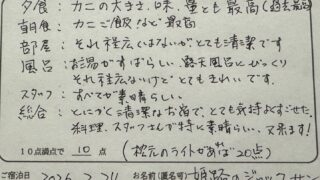 夕食：カニの大きさ、味、量とも最高(過去最高)
朝食：カニご飯！など最高
部屋：それ程広くはないが、とても清潔です
風呂：お湯がすばらしい、露天風呂にびっくり
それ程広ないけどとてもきれいです。
スタッフ：すべてが素晴らしい
総合：とにかく清潔なお宿で、とても気持よくすごせた。
料理、スタッフさんが特に素晴らしい、又来ます！
10点満点で 10 点 (枕元のライトがあれば20点)
ご宿泊日 2026. 2. 24 お名前(匿名可) 姫路のジャック